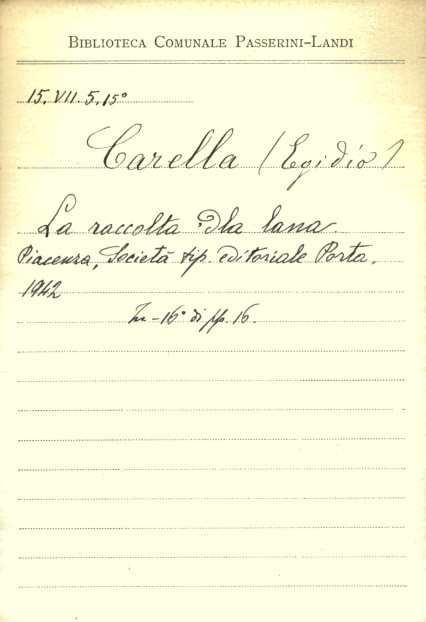 BIBLIOTECA COMUNALE PASSERINI-LANDI
15. VII. 5. 15°
Carella (Egidio)
La raccolta dla lana.
Piacenza, Società tip. editoriale Porta,
1942
In-16° di pp. 16.